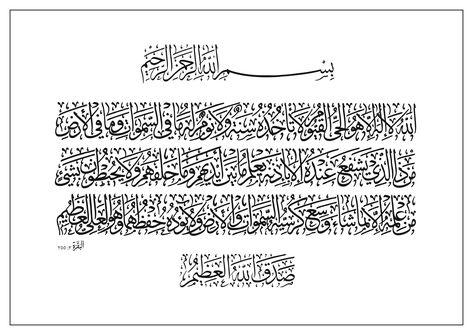 بِسْمِ اللَّهِ الرَّحْمَنِ الرَّحِيمِ
اللَّهُ لَا إِلَهَ إِلَّا هُوَ الْحَيُّ الْقَيُّومُ لَا تَأْخُذُهُ سِنَةٌ وَلَا نَوْمٌ لَهُ مَا فِي السَّمَوَاتِ وَمَا فِي الْأَرْضِ
مَنْ ذَا الَّذِي يَشْفَعُ عِنْدَهُ إِلَّا بِإِذْنِهِ يَعْلَمُ مَا بَيْنَ أَيْدِيهِمْ وَمَا خَلْفَهُمْ وَلَا يُحِيطُونَ بِشَيْءٍ
مِنْ عِلْمِهِ إِلَّا بِمَا شَاءَ وَسِعَ كُرْسِيُّهُ السَّمَوَاتِ وَالْأَرْضَ وَلَا يَئُودُهُ حِفْظُهُمَا وَهُوَ الْعَلِيُّ الْعَظِيمُ
البقرة ٢:٢٥٥
صَدَقَ اللَّهُ الْعَظِيمُ